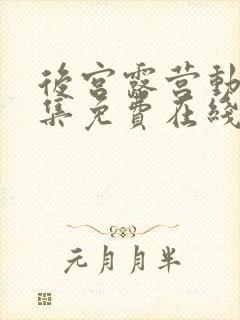 後宮露营動
集免費在綫
元月月半